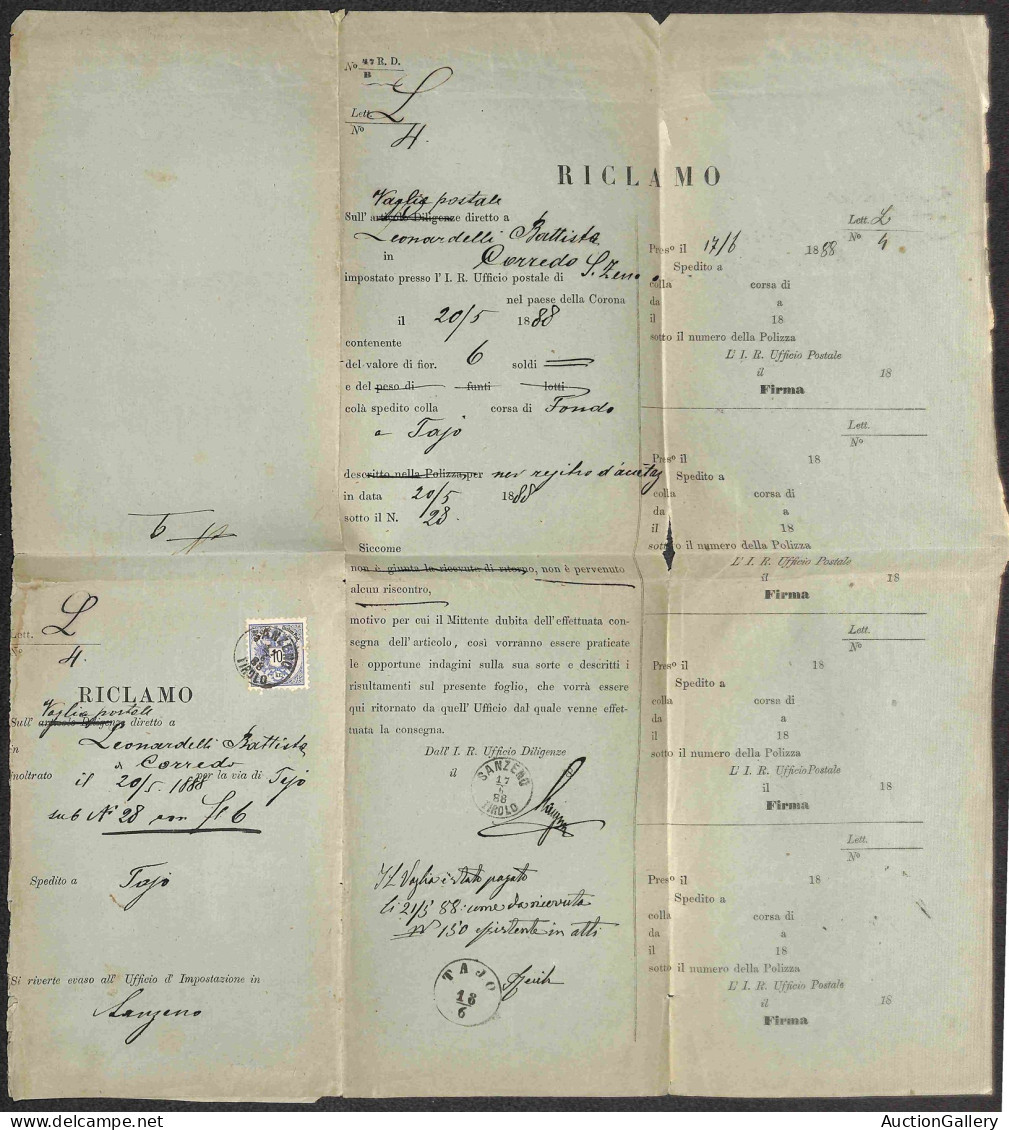 No 47 R. D.
B
Lett. L
No 4.
RICLAMO
Vaglia postale
Sull' articolo Diligenze diretto a
Leonardelli Battista
in Corredo
impostato presso l' I. R. Ufficio postale di S. Zeno
nel paese della Corona
il 20/5 1888
contenente
del valore di fior. 6 soldi
e del peso di funti lotti
colà spedito colla corsa di Fondo
a Tajo
descritto nella Polizza, per nei registro d'accettaz
in data 20/5 1888
sotto il N. 28
Siccome
non è giunta la ricevuta di ritorno, non è pervenuto
alcun riscontro,
motivo per cui il Mittente dubita dell'effettuata con-
segna dell'articolo, così vorranno essere praticate
le opportune indagini sulla sua sorte e descritti i
risultamenti sul presente foglio, che vorrà essere
qui ritornato da quell' Ufficio dal quale venne effet-
tuata la consegna.
Dall' I. R. Ufficio Diligenze
il
SANZENO
17
6
88
TIROLO
Il Vaglia è stato pagato
li 21/5 88 come da ricevuta
N° 150 esistente in atti
TAJO
18
6
Lett. L
No 4
Presº il 17/6 1888
Spedito a
colla corsa di
da a
il 18
sotto il numero della Polizza
L' I. R. Ufficio Postale
il 18
Firma
Lett.
No
Presº il 18
Spedito a
colla corsa di
da a
il 18
sotto il numero della Polizza
L' I. R. Ufficio Postale
il 18
Firma
Lett.
No
Presº il 18
Spedito a
colla corsa di
da a
il 18
sotto il numero della Polizza
L' I. R. Ufficio Postale
il 18
Firma
Lett.
No
Presº il 18
Spedito a
colla corsa di
da a
il 18
sotto il numero della Polizza
L' I. R. Ufficio Postale
il 18
Firma
Lett. L
No 4.
SANZENO
88
TIROLO
10
RICLAMO
Vaglia postale
Sull' articolo Diligenze diretto a
in Leonardelli Battista
a Corredo
Inoltrato il 20/5 1888 per la via di Tajo
sub N° 28 con fl 6
Spedito a Tajo
Si riverte evaso all' Ufficio d' Impostazione in
Sanzeno
AuctionGallery